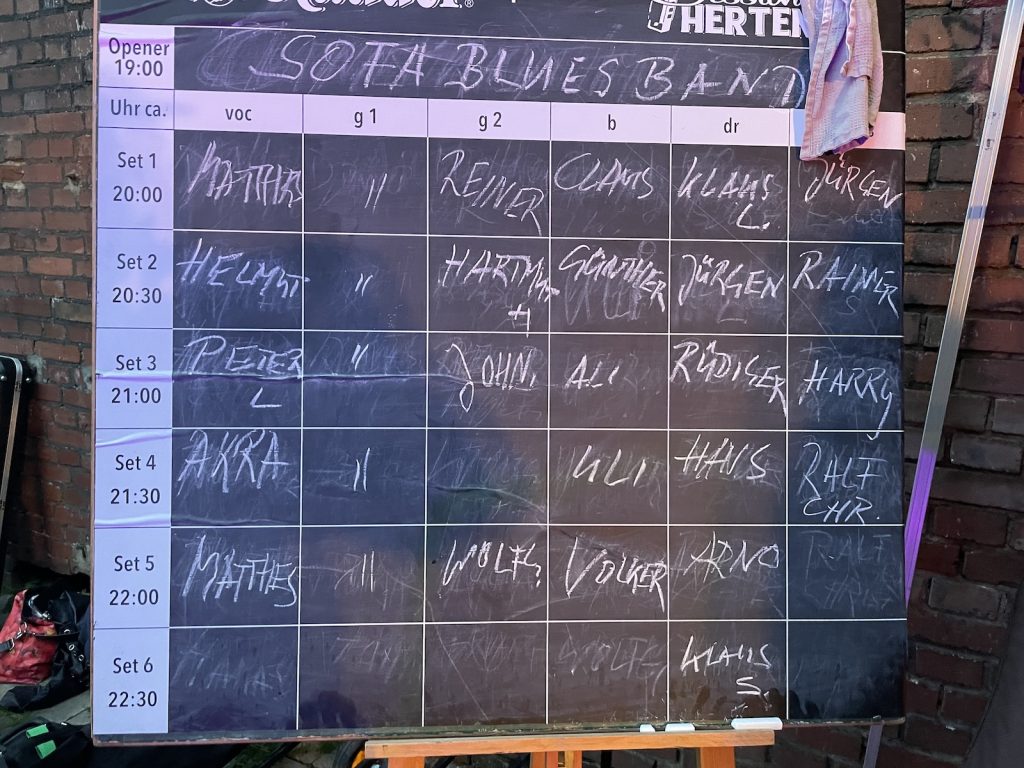 HERTEN
Opener
19:00
SOFA BLUES BAND
Uhr ca. voc g 1 g 2 b dr
Set 1
20:00
MATTHES " REINER CLAUS KLAUS L. JÜRGEN
Set 2
20:30
HELMUT " HARTMUT GÜNTHER JÜRGEN RAINER S
Set 3
21:00
PETER L " JOHN ALI RÜDIGER HARRY
Set 4
21:30
AKRA " ULI HANS RALF CHR.
Set 5
22:00
MATTHES " WOLFG. VOLKER ARNO
Set 6
22:30
KLAUS S.